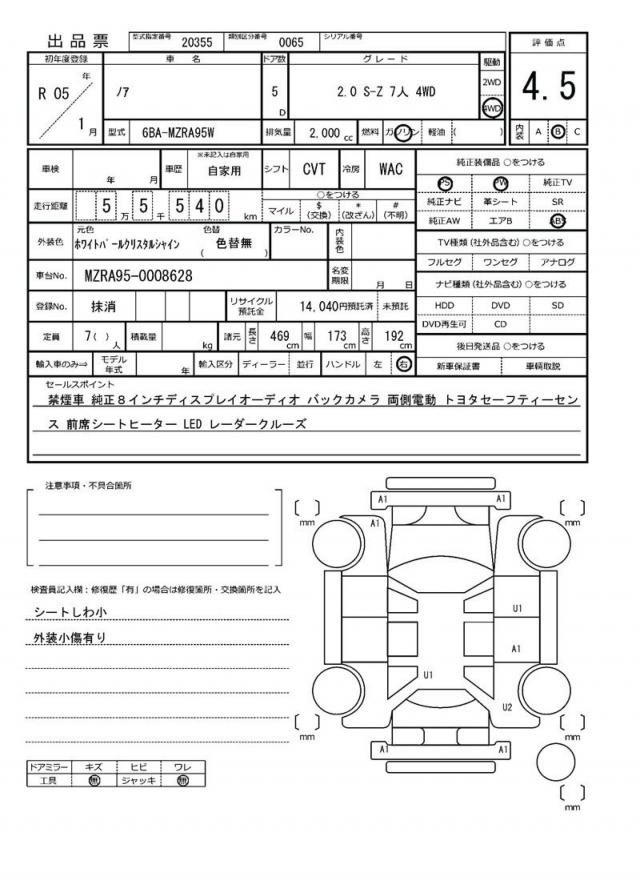 出品票 型式指定番号 20355 類別区分番号 0065 シリアル番号
初年度登録 車名 ドア数 グレード 駆動 評価点
R 05 年 1 月 ノア 5 D 2.0 S-Z 7人 4WD 2WD 4WD 4.5
型式 6BA-MZRA95W 排気量 2,000 cc 燃料 ガソリン 軽油 ( ) 内装 A B C
車検 年 月 車歴 ※未記入は自家用 自家用 シフト CVT 冷房 WAC
走行距離 5 5 万 5 千 5 4 0 km ○をつける マイル $ (交換) * (改ざん) # (不明)
外装色 元色 ホワイトパールクリスタルシャイン 色替 ( 色替無 ) カラーNo. 内装色
車台No. MZRA95-0008628 名変期限 月 日
登録No. 抹消 リサイクル預託金 14,040円預託済 未預託
定員 7( ) 人 積載量 kg 諸元 長さ 469 cm 幅 173 cm 高さ 192 cm
輸入車のみ⇒ モデル年式 年 輸入区分 ディーラー 並行 ハンドル 左 右
純正装備品 ○をつける
PS PW 純正TV
純正ナビ 革シート SR
純正AW エアB ABS
TV種類 (社外品含む) ○をつける
フルセグ ワンセグ アナログ
ナビ種類 (社外品含む) ○をつける
HDD DVD SD
DVD再生可 CD
後日発送品 ○をつける
新車保証書 車輌取説
セールスポイント
禁煙車 純正8インチディスプレイオーディオ バックカメラ 両側電動 トヨタセーフティーセン
ス 前席シートヒーター LED レーダークルーズ
注意事項・不具合箇所
検査員記入欄:修復歴「有」の場合は修復箇所・交換箇所を記入
シートしわ小
外装小傷有り
ドアミラー キズ ヒビ ワレ
工具 無 ジャッキ 無
A1 A1
mm A1 mm
U1
A1
U1
U2
mm mm
A1 A1
mm